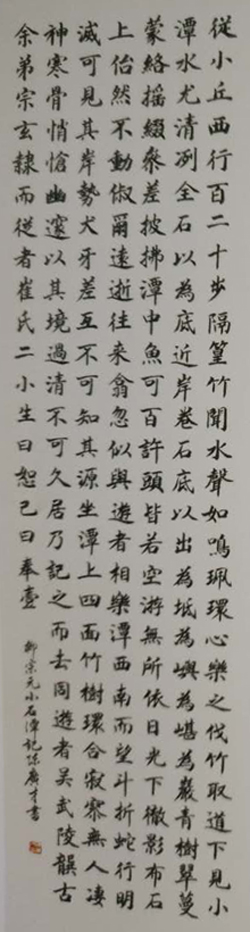 從小丘西行百二十步隔篁竹聞水聲如鳴珮環心樂之伐竹取道下見小
潭水尤清冽全石以為底近岸卷石底以出為坻為嶼為嵁為巖青樹翠蔓
蒙絡搖綴參差披拂潭中魚可百許頭皆若空游無所依日光下徹影布石
上佁然不動俶爾遠逝往來翕忽似與遊者相樂潭西南而望斗折蛇行明
滅可見其岸勢犬牙差互不可知其源坐潭上四面竹樹環合寂寥無人凄
神寒骨悄愴幽邃以其境過清不可久居乃記之而去同遊者吳武陵龔古
余弟宗玄隸而從者崔氏二小生曰恕己曰奉壹
柳宗元小石潭記陈廣才書